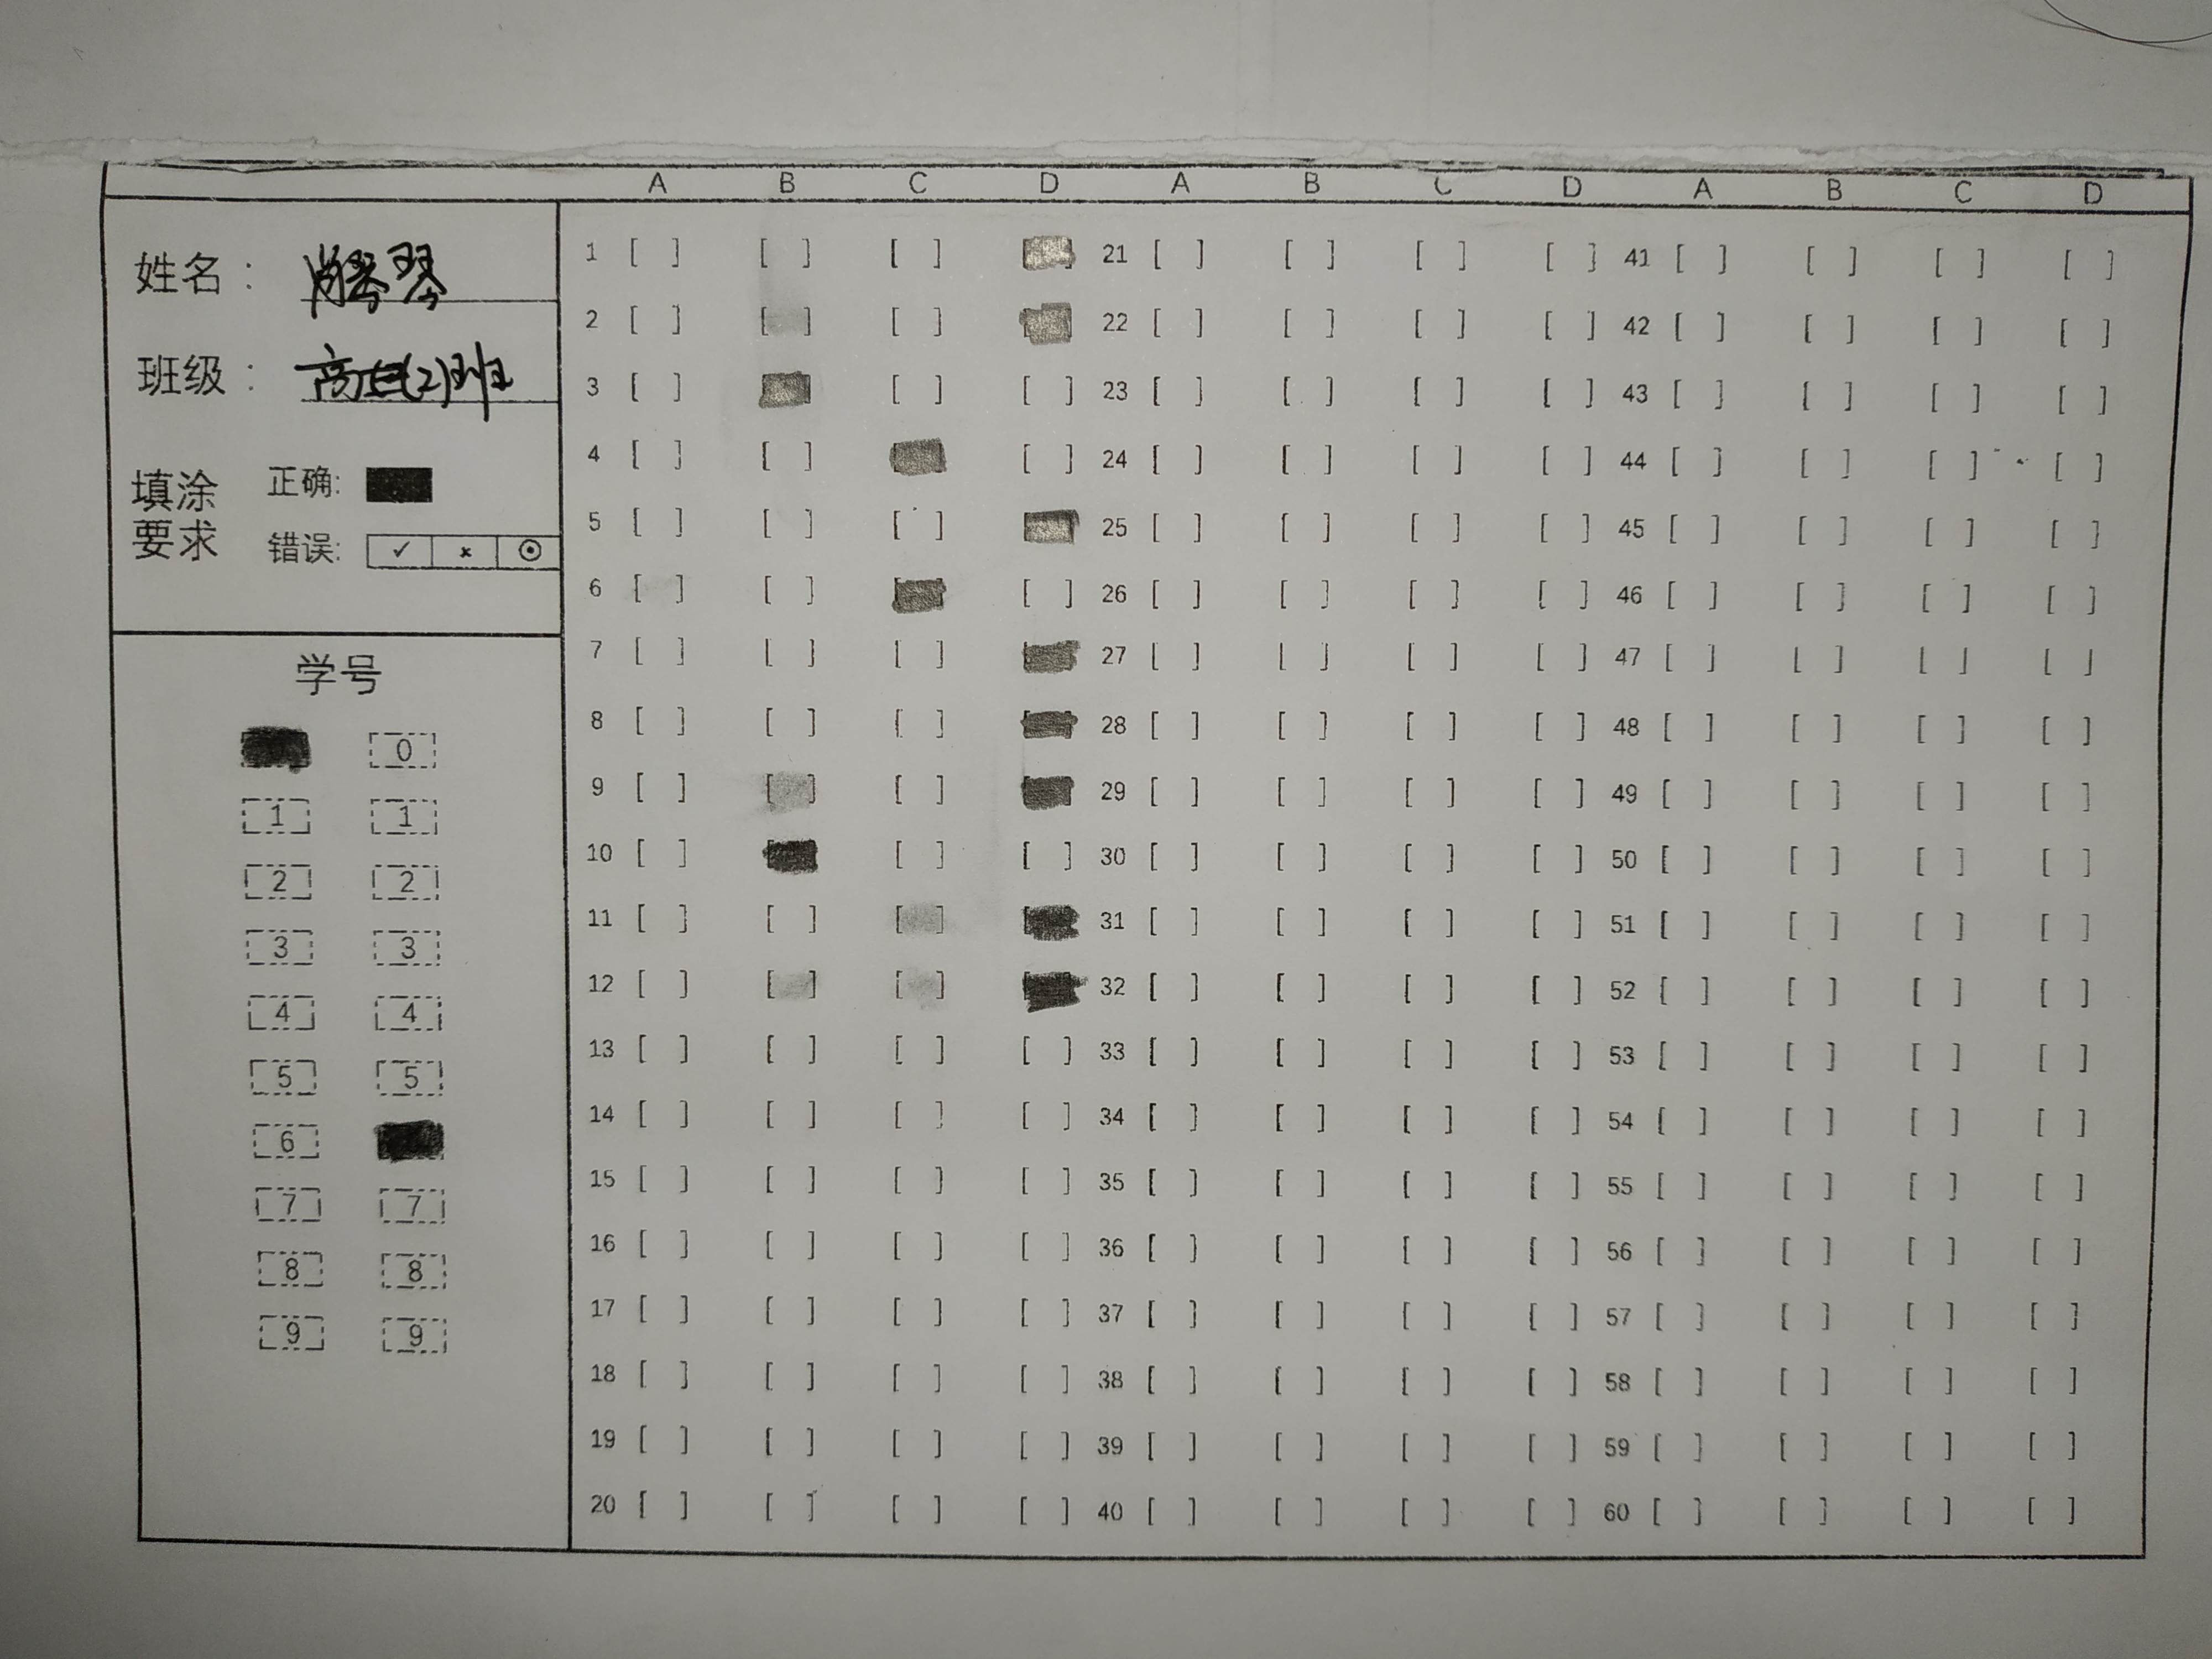 A B C D A B C D A B C D
姓名：
班级： 高(2)班
填涂要求 正确:
错误: ✓ × ⊙
学号
0
1 1
2 2
3 3
4 4
5 5
6
7 7
8 8
9 9
1 [ ] [ ] [ ] 21 [ ] [ ] [ ] [ ] 41 [ ] [ ] [ ] [ ]
2 [ ] [ ] [ ] 22 [ ] [ ] [ ] [ ] 42 [ ] [ ] [ ] [ ]
3 [ ] [ ] [ ] 23 [ ] [ ] [ ] [ ] 43 [ ] [ ] [ ] [ ]
4 [ ] [ ] [ ] 24 [ ] [ ] [ ] [ ] 44 [ ] [ ] [ ] [ ]
5 [ ] [ ] [ ] 25 [ ] [ ] [ ] [ ] 45 [ ] [ ] [ ] [ ]
6 [ ] [ ] [ ] 26 [ ] [ ] [ ] [ ] 46 [ ] [ ] [ ] [ ]
7 [ ] [ ] [ ] 27 [ ] [ ] [ ] [ ] 47 [ ] [ ] [ ] [ ]
8 [ ] [ ] [ ] 28 [ ] [ ] [ ] [ ] 48 [ ] [ ] [ ] [ ]
9 [ ] [ ] [ ] 29 [ ] [ ] [ ] [ ] 49 [ ] [ ] [ ] [ ]
10 [ ] [ ] [ ] 30 [ ] [ ] [ ] [ ] 50 [ ] [ ] [ ] [ ]
11 [ ] [ ] [ ] 31 [ ] [ ] [ ] [ ] 51 [ ] [ ] [ ] [ ]
12 [ ] [ ] [ ] 32 [ ] [ ] [ ] [ ] 52 [ ] [ ] [ ] [ ]
13 [ ] [ ] [ ] [ ] 33 [ ] [ ] [ ] [ ] 53 [ ] [ ] [ ] [ ]
14 [ ] [ ] [ ] [ ] 34 [ ] [ ] [ ] [ ] 54 [ ] [ ] [ ] [ ]
15 [ ] [ ] [ ] [ ] 35 [ ] [ ] [ ] [ ] 55 [ ] [ ] [ ] [ ]
16 [ ] [ ] [ ] [ ] 36 [ ] [ ] [ ] [ ] 56 [ ] [ ] [ ] [ ]
17 [ ] [ ] [ ] [ ] 37 [ ] [ ] [ ] [ ] 57 [ ] [ ] [ ] [ ]
18 [ ] [ ] [ ] [ ] 38 [ ] [ ] [ ] [ ] 58 [ ] [ ] [ ] [ ]
19 [ ] [ ] [ ] [ ] 39 [ ] [ ] [ ] [ ] 59 [ ] [ ] [ ] [ ]
20 [ ] [ ] [ ] [ ] 40 [ ] [ ] [ ] [ ] 60 [ ] [ ] [ ] [ ]